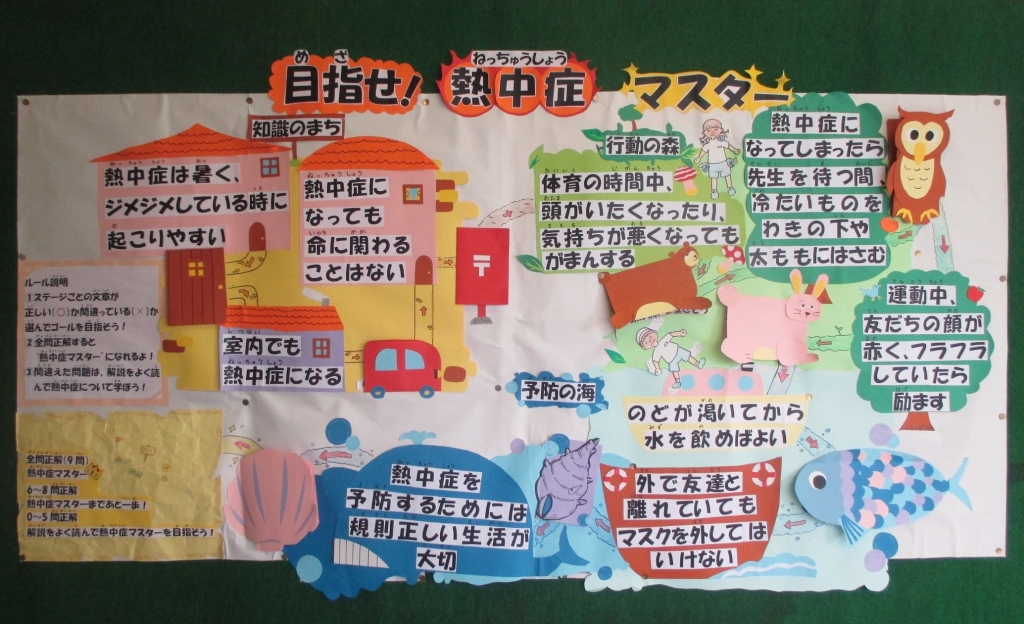 目指せ！ 熱中症 マスター
知識のまち
熱中症は暑く、
ジメジメしている時に
起こりやすい
熱中症に
なっても
命に関わる
ことはない
室内でも
熱中症になる
行動の森
体育の時間中、
頭がいたくなったり、
気持ちが悪くなっても
がまんする
熱中症に
なってしまったら
先生を待つ間、
冷たいものを
わきの下や
太ももにはさむ
運動中、
友だちの顔が
赤く、フラフラ
していたら
励ます
予防の海
のどが渇いてから
水を飲めばよい
外で友達と
離れていても
マスクを外しては
いけない
熱中症を
予防するためには
規則正しい生活が
大切
ルール説明
1 ステージごとの文章が
正しい(○)か間違っている(×)か
選んでゴールを目指そう！
2 全問正解すると
"熱中症マスター"になれるよ！
3 間違えた問題は、解説をよく読
んで熱中症について学ぼう！
全問正解(9問)
熱中症マスター
6～8問正解
熱中症マスターまであと一歩！
0～5問正解
解説をよく読んで熱中症マスターを目指そう！